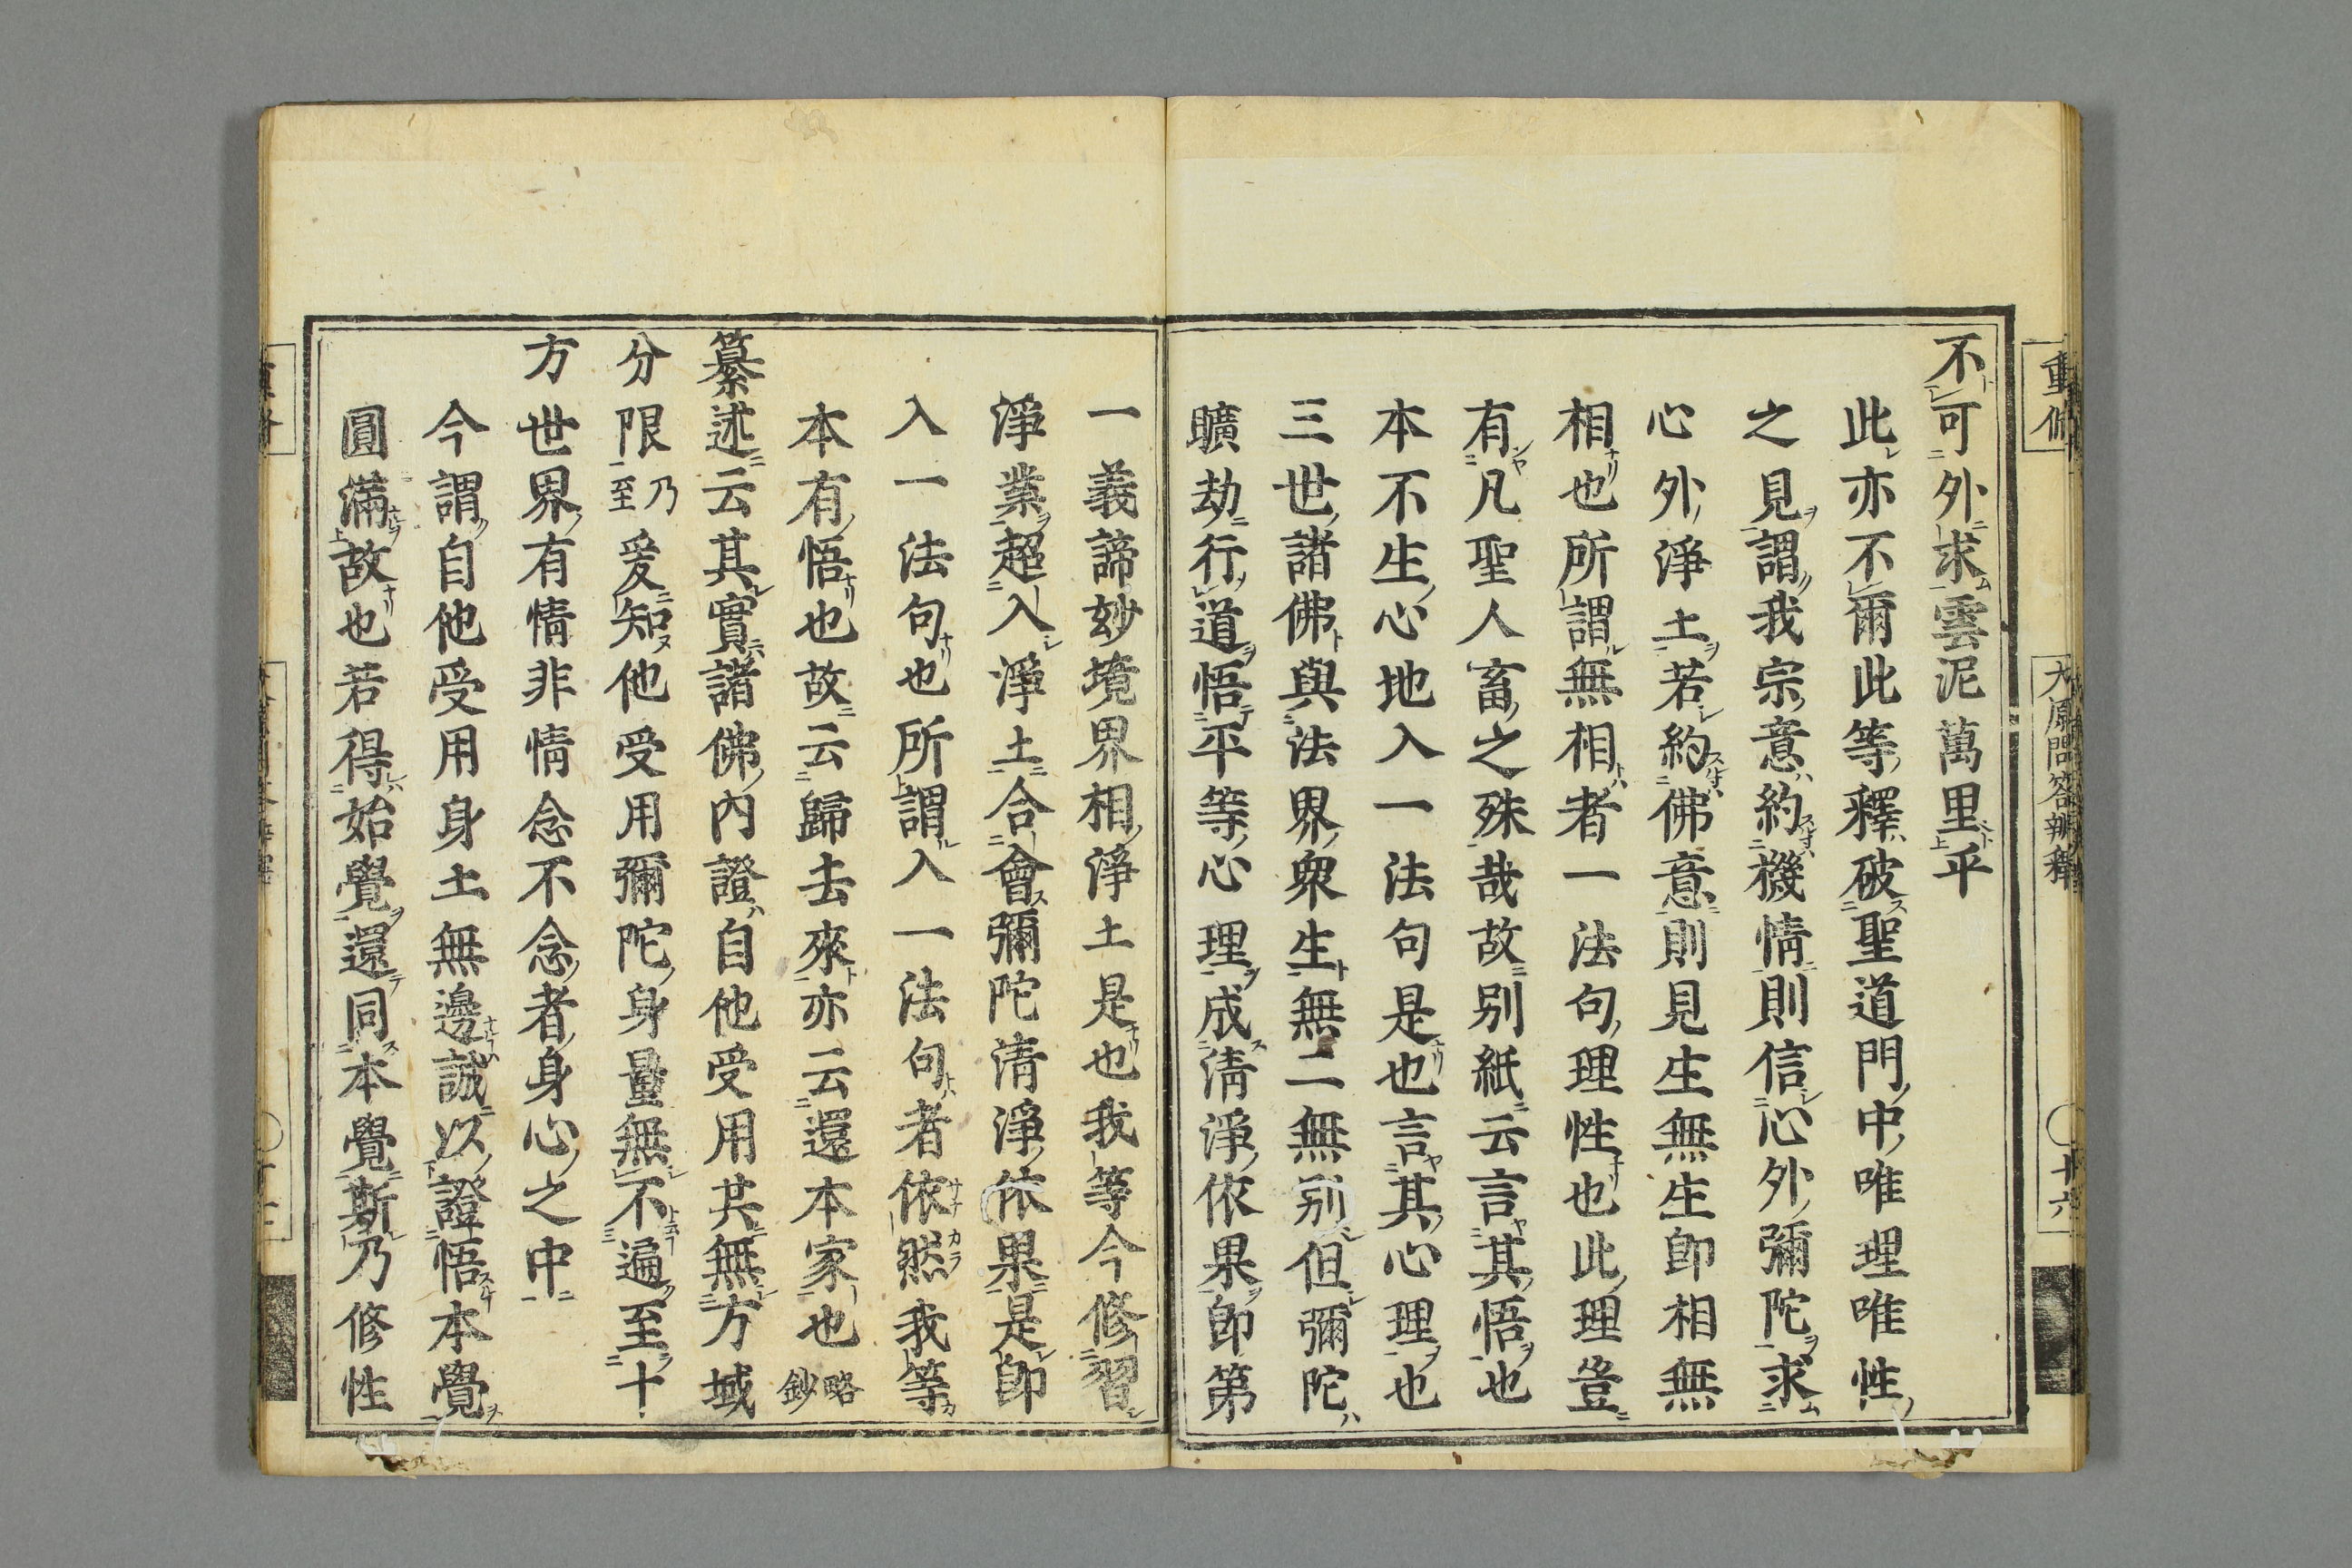 不可外求雲泥萬里乎
此亦不爾此等釋破聖道門中唯理唯性
之見謂我宗意約機情則信心外彌陀求
心外淨土若約佛意則見生無生卽相無
相也所謂無相者一法句理性也此理豈
有凡聖人畜之殊哉故別紙云言其悟也
本不生心地入一法句是也言其心理也
三世諸佛與法界衆生無二無別但彌陀
曠劫行道悟平等心理成淸淨依果卽第
一義諦妙境界相淨土是也我等今修習
淨業超入淨土合會彌陀淸淨依果是卽
入一法句也所謂入一法句者依然我等
本有悟也故云歸去來亦云還本家也略鈔
纂述云其實諸佛內證自他受用共無方域
分限乃至爰知他受用彌陀身量無不遍至十
方世界有情非情念不念者身心之中
今謂自他受用身土無邊誠以證悟本覺
圓滿故也若得始覺還同本覺斯乃修性
重修
大原問答辨釋
十六